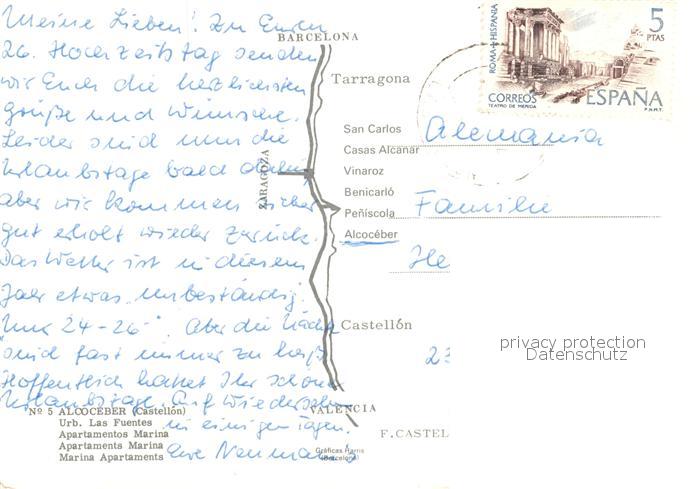 Meine Lieben! Zu Eurem
26. Hochzeitstag senden
wir Euch die herzlichsten
Grüße und Wünsche.
Leider sind nun die
Urlaubstage bald dahin,
aber wir kommen sicher
gut erholt wieder zurück.
Das Wetter ist in diesem
Jahr etwas unbeständig.
Nur 24-26°. Aber die Nächte
sind fast immer zu heiß.
Hoffentlich hattet Ihr schöne
Urlaubstage. Auf Wiedersehen
in einigen Tagen.
Eure
Nº 5 ALCOCEBER (Castellón)
Urb. Las Fuentes
Apartamentos Marina
Apartments Marina
Marina Apartments
BARCELONA
Tarragona
ZARAGOZA
San Carlos
Casas Alcanar
Vinaroz
Benicarló
Peñíscola
Alcocéber
Castellón
VALENCIA
Gráficas Harris
(Barcelona)
F. CASTEL
ROMA + HISPANIA
5
PTAS
CORREOS
TEATRO DE MERIDA
ESPAÑA
F.N.M.T.
Alemania
Familie
He
23
privacy protection
Datenschutz